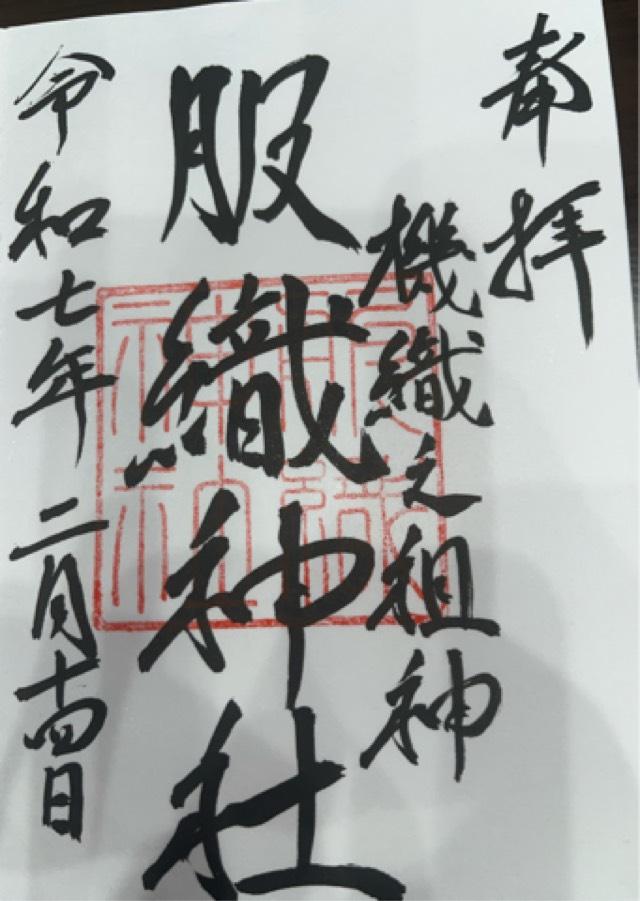 奉拝
機織之祖神
服織神社
服織神社
令和七年二月十四日